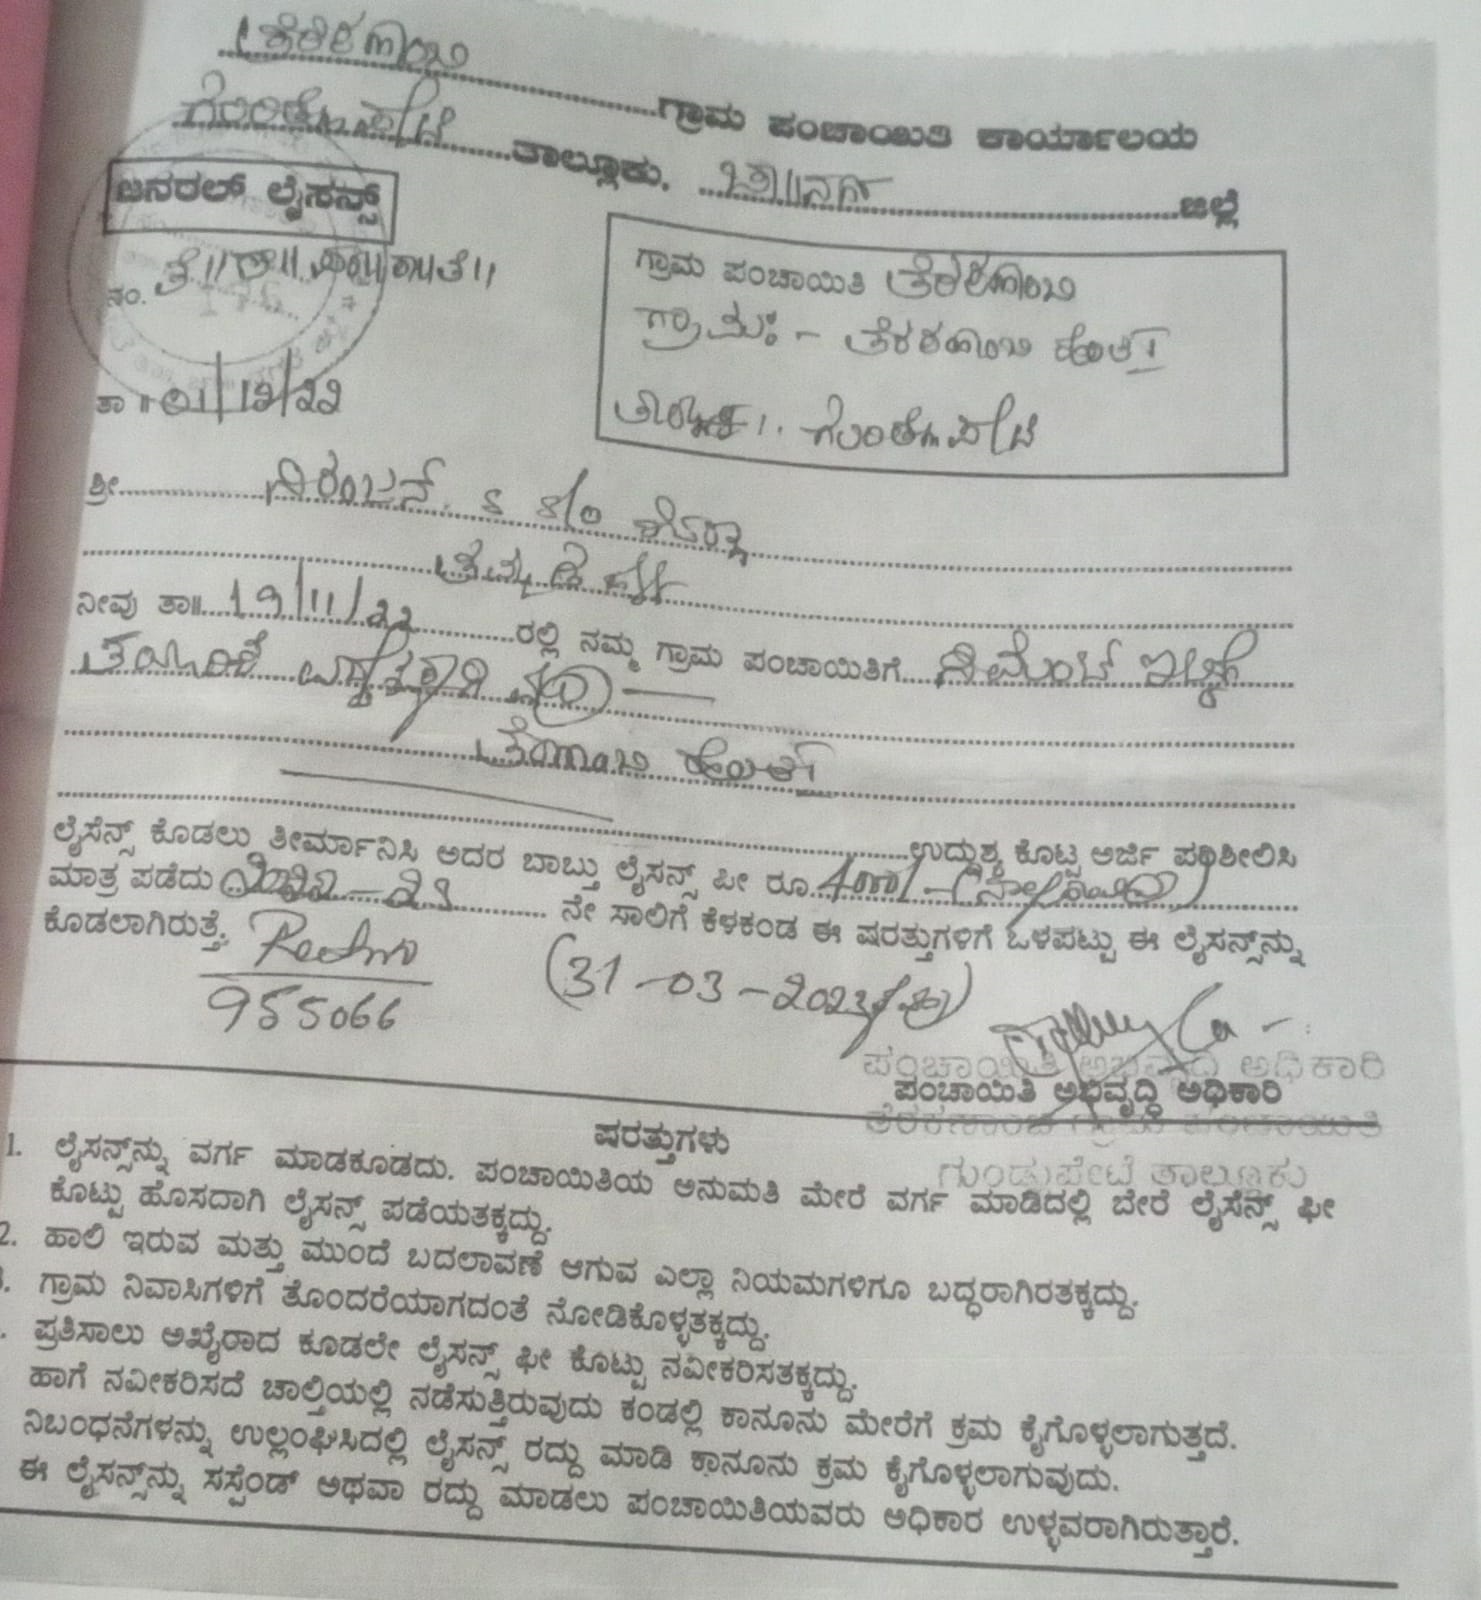 ತೆರಕಣಾಂಬಿ ಗ್ರಾಮ ಪಂಚಾಯಿತಿ ಕಾರ್ಯಾಲಯ
ಗುಂಡ್ಲುಪೇಟೆ ತಾಲ್ಲೂಕು, ಚಾ||ನಗರ ಜಿಲ್ಲೆ
ಜನರಲ್ ಲೈಸನ್ಸ್
ನಂ.
ಗ್ರಾಮ ಪಂಚಾಯಿತಿ ತೆರಕಣಾಂಬಿ
ಗ್ರಾಮ:- ತೆರಕಣಾಂಬಿ
ಗುಂಡ್ಲುಪೇಟೆ
ತಾ॥ 01/12/22
ಶ್ರೀ ನಿರಂಜನ್. S/o
ನೀವು ತಾ॥ 19/11/22 ರಲ್ಲಿ ನಮ್ಮ ಗ್ರಾಮ ಪಂಚಾಯಿತಿಗೆ ಸಿಮೆಂಟ್
ತಯಾರಿಕೆ
ಉದ್ದುಶ್ಯ ಕೊಟ್ಟ ಅರ್ಜಿ ಪರಿಶೀಲಿಸಿ
ಲೈಸೆನ್ಸ್ ಕೊಡಲು ತೀರ್ಮಾನಿಸಿ ಅದರ ಬಾಬ್ತು ಲೈಸನ್ಸ್ ಫೀ ರೂ.
ಮಾತ್ರ ಪಡೆದು 2022-23 ನೇ ಸಾಲಿಗೆ ಕೆಳಕಂಡ ಈ ಷರತ್ತುಗಳಿಗೆ ಒಳಪಟ್ಟು ಈ ಲೈಸನ್ಸ್‌ನ್ನು
ಕೊಡಲಾಗಿರುತ್ತೆ.
955066
(31-03-2023
ಪಂಚಾಯಿತಿ ಅಭಿವೃದ್ಧಿ ಅಧಿಕಾರಿ
ಪಂಚಾಯಿತಿ ಅಭಿವೃದ್ಧಿ ಅಧಿಕಾರಿ
ತೆರಕಣಾಂಬಿ ಗ್ರಾಮ ಪಂಚಾಯಿತಿ
ಗುಂಡ್ಲುಪೇಟೆ ತಾಲ್ಲೂಕು
ಷರತ್ತುಗಳು
1. ಲೈಸನ್ಸ್‌ನ್ನು ವರ್ಗ ಮಾಡಕೂಡದು. ಪಂಚಾಯಿತಿಯ ಅನುಮತಿ ಮೇರೆ ವರ್ಗ ಮಾಡಿದಲ್ಲಿ ಬೇರೆ ಲೈಸೆನ್ಸ್ ಫೀ
ಕೊಟ್ಟು ಹೊಸದಾಗಿ ಲೈಸನ್ಸ್ ಪಡೆಯತಕ್ಕದ್ದು.
2. ಹಾಲಿ ಇರುವ ಮತ್ತು ಮುಂದೆ ಬದಲಾವಣೆ ಆಗುವ ಎಲ್ಲಾ ನಿಯಮಗಳಿಗೂ ಬದ್ಧರಾಗಿರತಕ್ಕದ್ದು.
ಗ್ರಾಮ ನಿವಾಸಿಗಳಿಗೆ ತೊಂದರೆಯಾಗದಂತೆ ನೋಡಿಕೊಳ್ಳತಕ್ಕದ್ದು.
ಪ್ರತಿಸಾಲು ಅಖೈರಾದ ಕೂಡಲೇ ಲೈಸನ್ಸ್ ಫೀ ಕೊಟ್ಟು ನವೀಕರಿಸತಕ್ಕದ್ದು.
ಹಾಗೆ ನವೀಕರಿಸದೆ ಚಾಲ್ತಿಯಲ್ಲಿ ನಡೆಸುತ್ತಿರುವುದು ಕಂಡಲ್ಲಿ ಕಾನೂನು ಮೇರೆಗೆ ಕ್ರಮ ಕೈಗೊಳ್ಳಲಾಗುತ್ತದೆ.
ನಿಬಂಧನೆಗಳನ್ನು ಉಲ್ಲಂಘಿಸಿದಲ್ಲಿ ಲೈಸನ್ಸ್ ರದ್ದು ಮಾಡಿ ಕಾನೂನು ಕ್ರಮ ಕೈಗೊಳ್ಳಲಾಗುವುದು.
ಈ ಲೈಸನ್ಸ್‌ನ್ನು ಸಸ್ಪೆಂಡ್ ಅಥವಾ ರದ್ದು ಮಾಡಲು ಪಂಚಾಯಿತಿಯವರು ಅಧಿಕಾರ ಉಳ್ಳವರಾಗಿರುತ್ತಾರೆ.